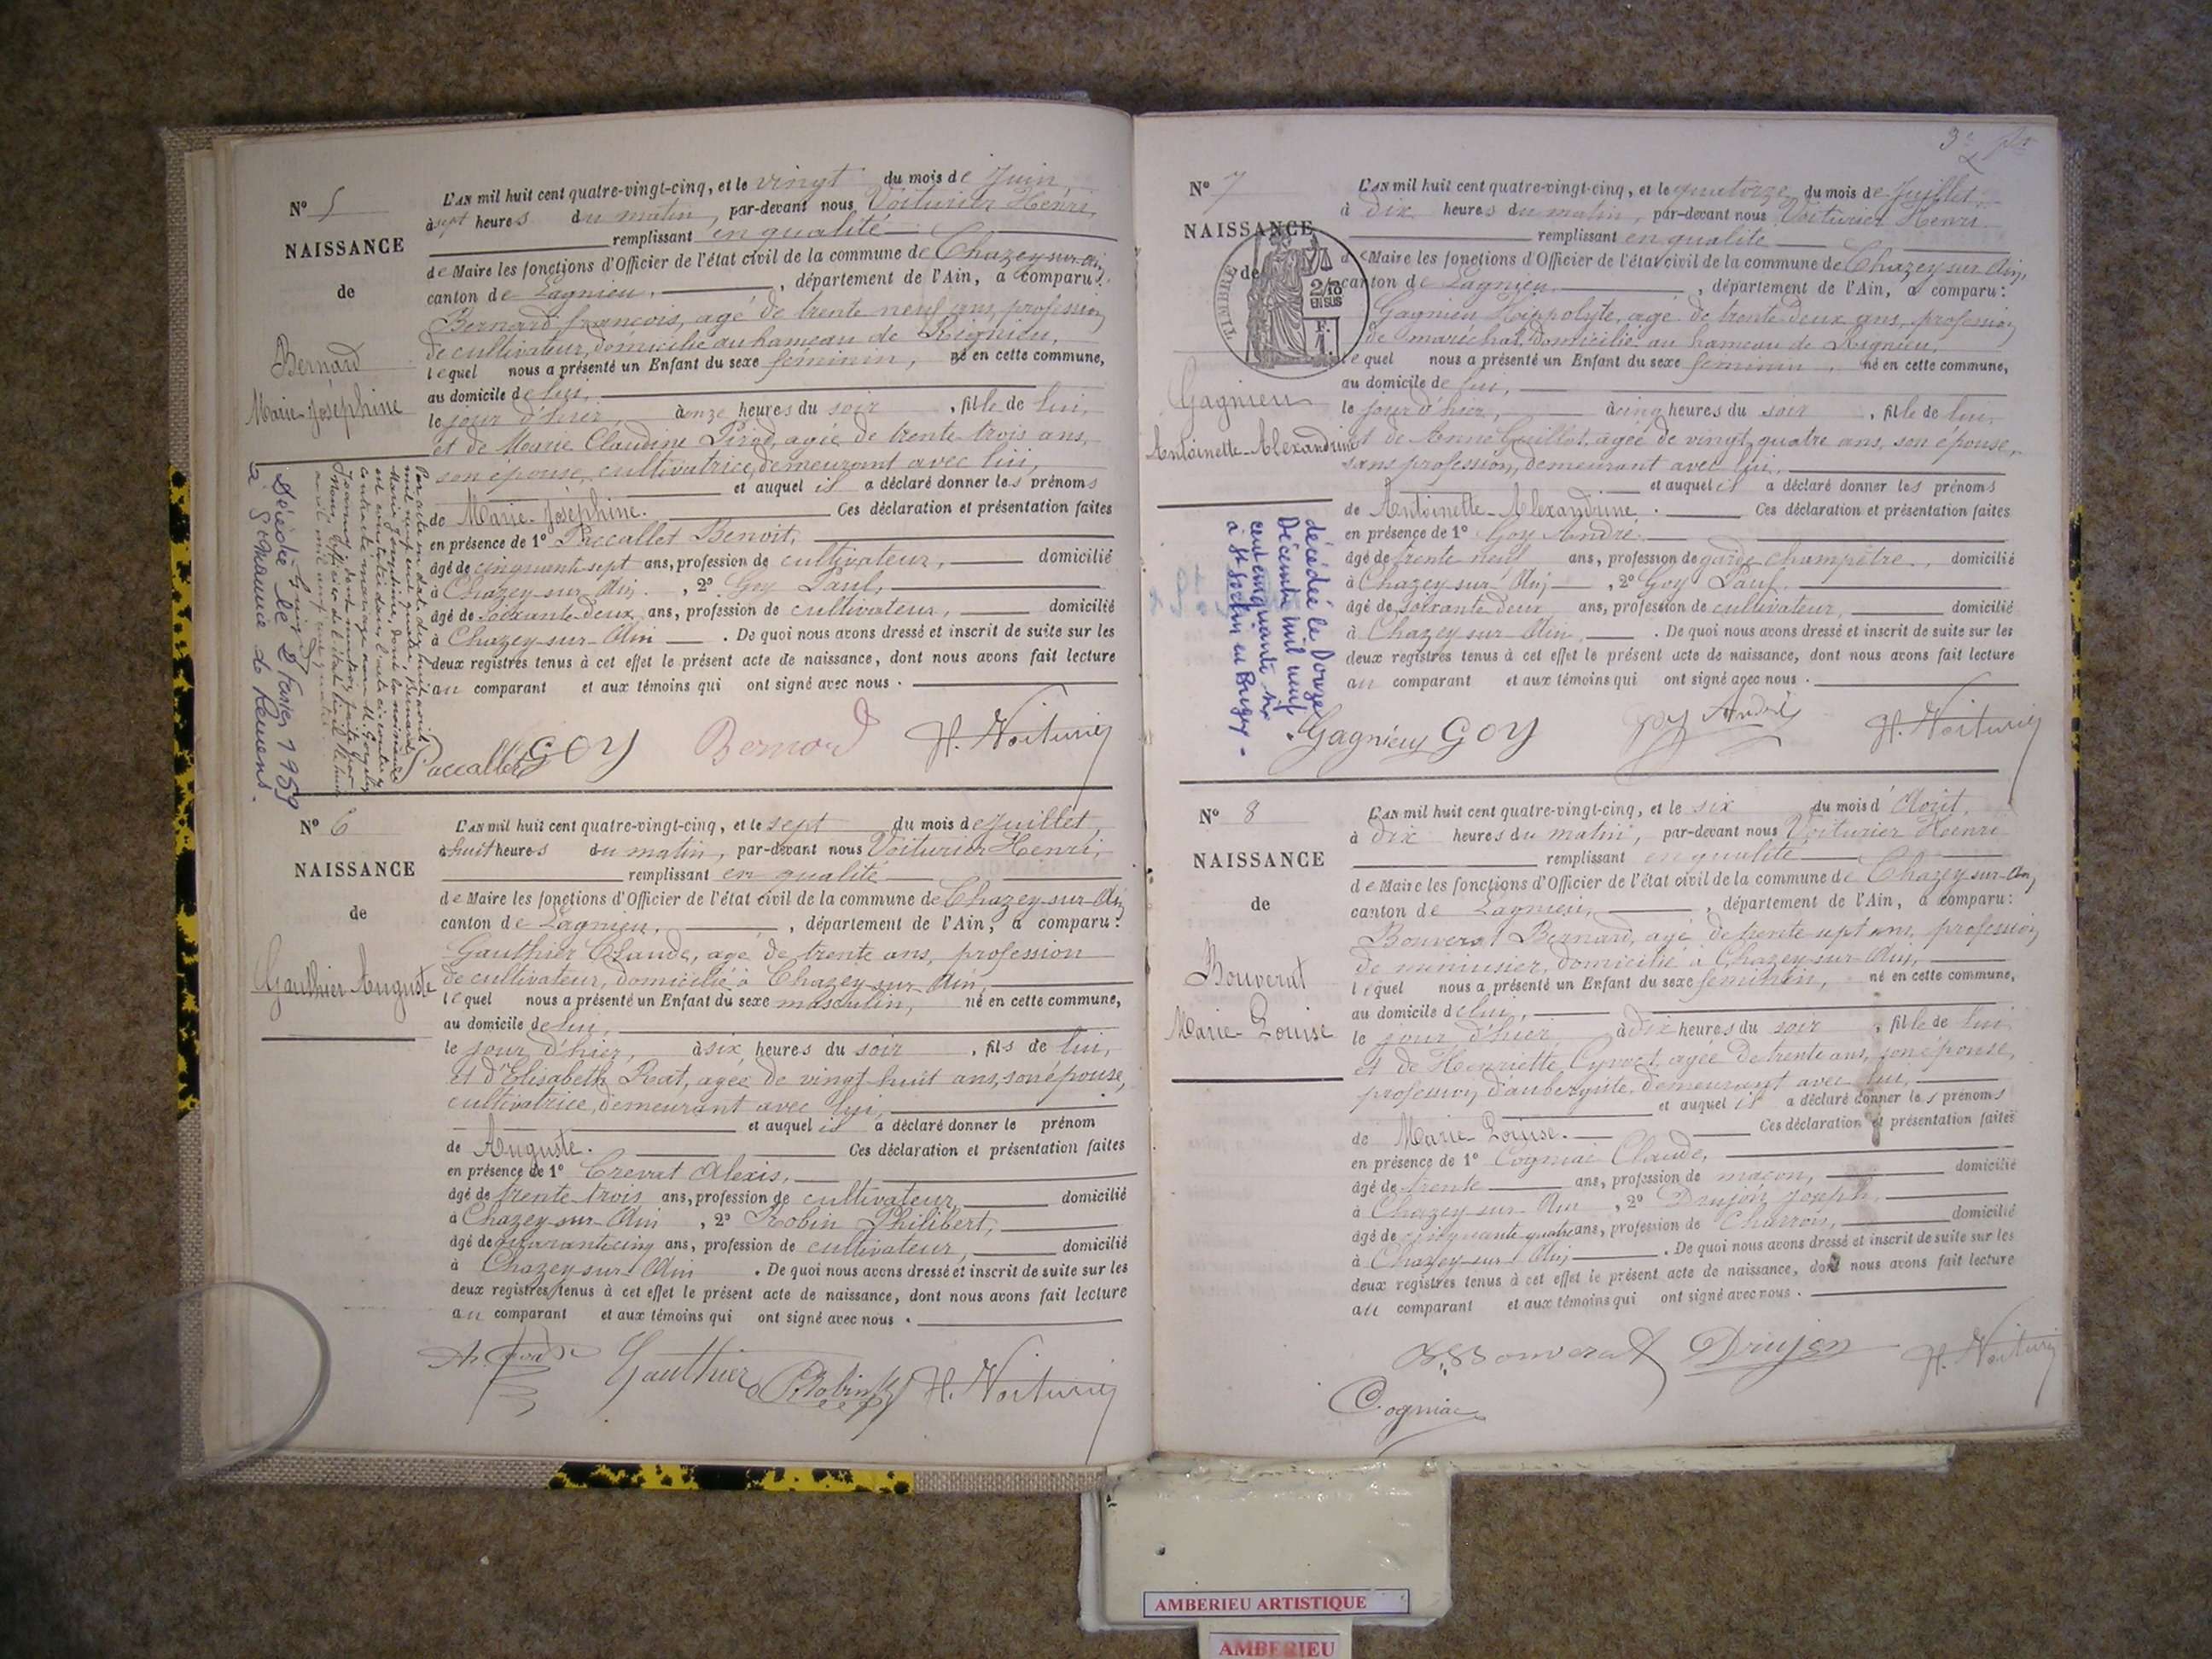 N° 5
NAISSANCE
de
Bernard
Marie-Joséphine
L'AN mil huit cent quatre-vingt-cinq, et le vingt du mois de Juin,
à sept heures du matin, par-devant nous Voiturier Henri,
remplissant en qualité
de Maire les fonctions d'Officier de l'état civil de la commune de Chazey-sur-Ain,
canton de Lagnieu, département de l'Ain, a comparu:
Bernard françois, agé de trente neuf ans, profession
de cultivateur, domicilié au hameau de Rignieu,
lequel nous a présenté un Enfant du sexe féminin, né en cette commune,
au domicile de lui,
le jour d'hier, à onze heures du soir, fille de lui,
et de Marie Claudine agée de trente trois ans,
son épouse, cultivatrice, demeurant avec lui,
et auquel il a déclaré donner les prénoms
de Marie-Joséphine. Ces déclaration et présentation faites
en présence de 1° Paccallet Benoit,
âgé de cinquante sept ans, profession de cultivateur, domicilié
à Chazey-sur-Ain, 2° Goy Paul,
âgé de soixante deux ans, profession de cultivateur, domicilié
à Chazey-sur-Ain. De quoi nous avons dressé et inscrit de suite sur les
deux registres tenus à cet effet le présent acte de naissance, dont nous avons fait lecture
au comparant et aux témoins qui ont signé avec nous.
Décédée le 2 1959
à de
Paccallet GOY Bernard H. Voiturier
N° 6
NAISSANCE
de
Gauthier Auguste
L'AN mil huit cent quatre-vingt-cinq, et le sept du mois de Juillet,
à huit heures du matin, par-devant nous Voiturier Henri,
remplissant en qualité
de Maire les fonctions d'Officier de l'état civil de la commune de Chazey-sur-Ain
canton de Lagnieu, département de l'Ain, a comparu:
Gauthier Claude, agé de trente ans, profession
de cultivateur, domicilié à Chazey-sur-Ain,
lequel nous a présenté un Enfant du sexe masculin, né en cette commune,
au domicile de lui,
le jour d'hier, à six heures du soir, fils de lui,
et d'Elisabeth Rat, agée de vingt huit ans, son épouse,
cultivatrice, demeurant avec lui,
et auquel il a déclaré donner le prénom
de Auguste. Ces déclaration et présentation faites
en présence de 1° Crevat Alexis,
âgé de trente trois ans, profession de cultivateur, domicilié
à Chazey-sur-Ain, 2° Robin Philibert,
âgé de quarante cinq ans, profession de cultivateur, domicilié
à Chazey-sur-Ain. De quoi nous avons dressé et inscrit de suite sur les
deux registres tenus à cet effet le présent acte de naissance, dont nous avons fait lecture
au comparant et aux témoins qui ont signé avec nous.
Gauthier Robin H. Voiturier
N° 7
NAISSANCE
de
TIMBRE
2/10
EN SUS
Gagnieu
Antoinette-Alexandrine
L'AN mil huit cent quatre-vingt-cinq, et le quatorze du mois de Juillet,
à dix heures du matin, par-devant nous Voiturier Henri
remplissant en qualité
de Maire les fonctions d'Officier de l'état civil de la commune de Chazey-sur-Ain,
canton de Lagnieu, département de l'Ain, a comparu:
Gagnieu Hippolyte, agé de trente deux ans, profession
de maréchal, domicilié au hameau de Rignieu,
lequel nous a présenté un Enfant du sexe féminin, né en cette commune,
au domicile de lui,
le jour d'hier, à cinq heures du soir, fille de lui,
et de Anne Guillot, agée de vingt quatre ans, son épouse,
sans profession, demeurant avec lui,
et auquel il a déclaré donner les prénoms
de Antoinette-Alexandrine. Ces déclaration et présentation faites
en présence de 1° Goy André,
âgé de trente neuf ans, profession de garde champêtre, domicilié
à Chazey-sur-Ain, 2° Goy Paul,
âgé de soixante deux ans, profession de cultivateur, domicilié
à Chazey-sur-Ain. De quoi nous avons dressé et inscrit de suite sur les
deux registres tenus à cet effet le présent acte de naissance, dont nous avons fait lecture
au comparant et aux témoins qui ont signé avec nous.
décédée le Douze
Décembre mil neuf
cent cinquante six
à St Sorlin en Bugey -
Gagnieu GOY Goy André H. Voiturier
N° 8
NAISSANCE
de
Bouverat
Marie-Louise
L'AN mil huit cent quatre-vingt-cinq, et le six du mois d'Août,
à dix heures du matin, par-devant nous Voiturier Henri
remplissant en qualité
de Maire les fonctions d'Officier de l'état civil de la commune de Chazey-sur-Ain
canton de Lagnieu, département de l'Ain, a comparu:
Bouverat Bernard, agé de trente sept ans, profession
de menuisier, domicilié à Chazey-sur-Ain,
lequel nous a présenté un Enfant du sexe féminin, né en cette commune,
au domicile de lui,
le jour d'hier à dix heures du soir, fille de lui
et de Henriette agée de trente ans, son épouse,
profession d'aubergiste, demeurant avec lui,
et auquel il a déclaré donner les prénoms
de Marie-Louise. Ces déclaration et présentation faites
en présence de 1° Cogniac Claude,
âgé de trente ans, profession de maçon, domicilié
à Chazey-sur-Ain, 2° Drujon Joseph,
âgé de cinquante quatre ans, profession de charron, domicilié
à Chazey-sur-Ain. De quoi nous avons dressé et inscrit de suite sur les
deux registres tenus à cet effet le présent acte de naissance, dont nous avons fait lecture
au comparant et aux témoins qui ont signé avec nous.
Bouverat Drujon H. Voiturier
Cogniac
AMBERIEU ARTISTIQUE
AMBERIEU